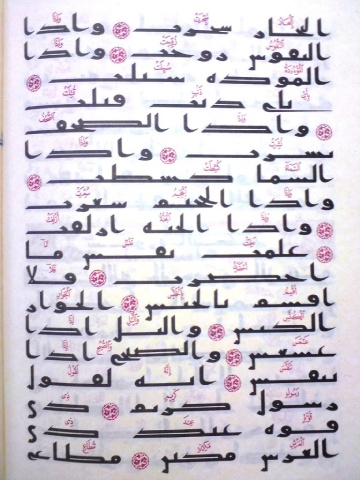 البحار سجرت ۝ واذا
النفوس زوجت ۝ واذا
الموده سيلت ۝
باي ذنب قتلت
۝ واذا الصحف
نشرت ۝ واذا
السما كشطت ۝
واذا الجحيم سعرت
۝ واذا الجنه ازلفت
۝ علمت نفس ما
احضرت ۝ فلا
اقسم بالخنس ۝ الجوار
الكنس ۝ والليل اذا
عسعس ۝ والصبح اذا
تنفس ۝ انه لقول
رسول كريم ۝ ذي
قوه عند ذي
العرش مكين ۝ مطاع